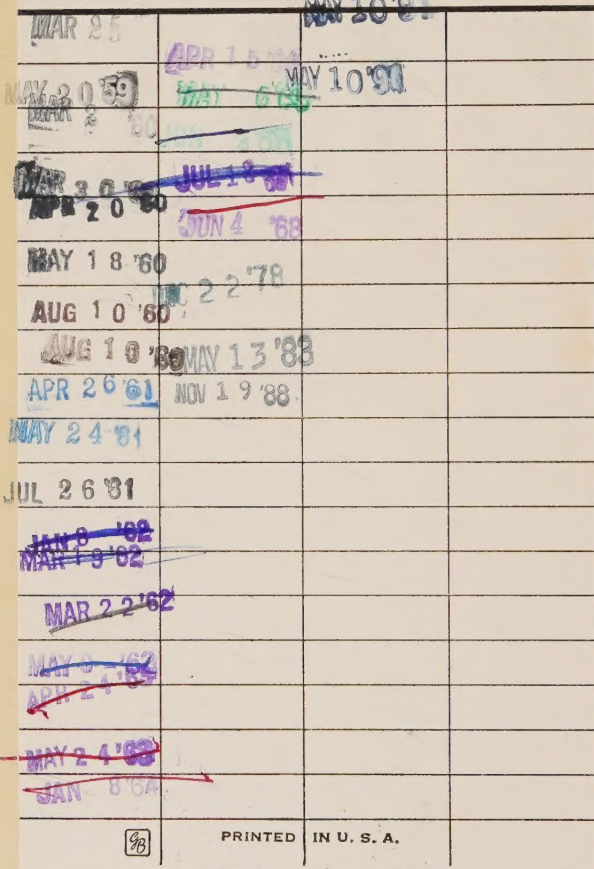 MAR 25
MAY 20 '59
MAR 2 '60
MAR 30
APR 20 '60
MAY 18 '60
AUG 10 '60
AUG 10 '60
APR 26 '61
MAY 24 '61
JUL 26 '61
JAN 8 '62
MAR 19 '62
MAR 22 '62
MAY 8 '62
APR 24
MAY 24 '63
JAN 8 '64
APR 15
MAY 6
JUL 18
JUN 4 '68
22 '78
MAY 13 '83
NOV 19 '88
MAY 10
MAY 10 '91
GB
PRINTED IN U. S. A.